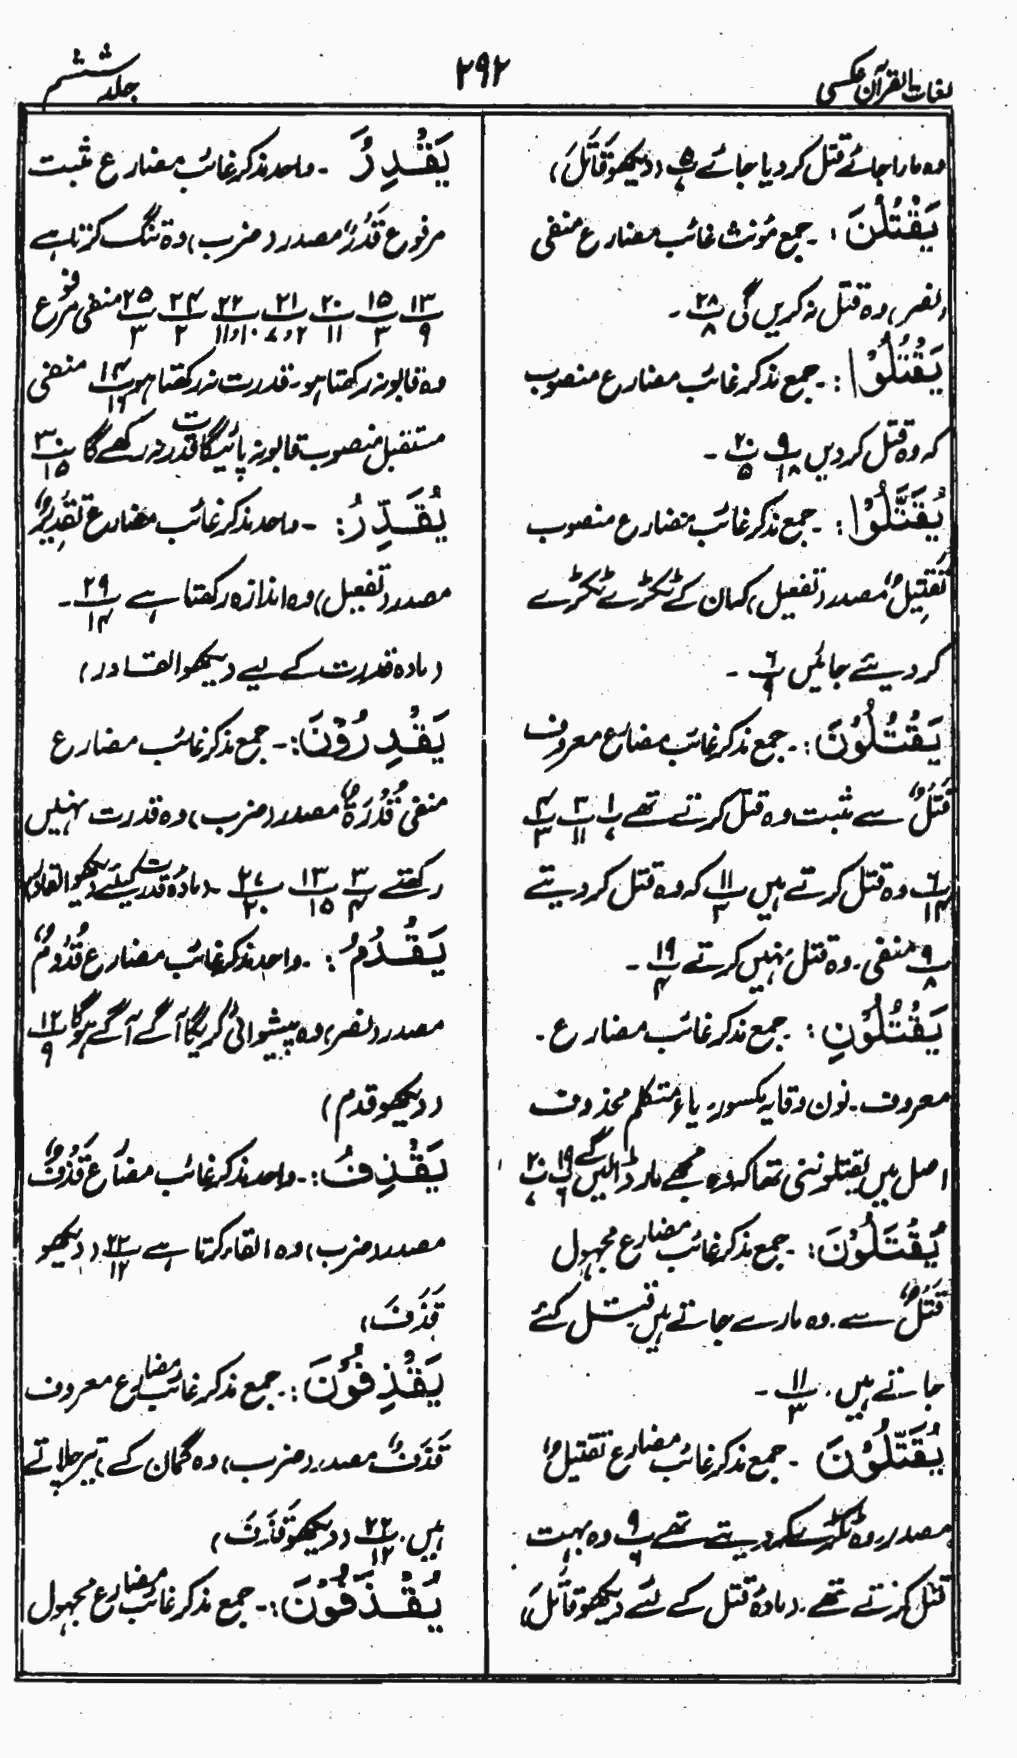 لغات القرآن عکسی
۲۹۲
جلد ششم
وہ مارا جائے قتل کر دیا جائے پ۵ (دیکھو قَاتَلَ)
یَقْتُلْنَ :۔ جمع مؤنث غائب مضارع منفی
(نصر) وہ قتل نہ کریں گی پ۲۸/۸ ۔
یَقْتُلُوْا :۔ جمع مذکر غائب مضارع منصوب
کہ وہ قتل کر دیں پ۹/۱۸ پ۲۰/۵ ۔
یُقَتَّلُوْا :۔ جمع مذکر غائب مضارع منصوب
تَقْتِیْلٌ مصدر (تفعیل) کہ ان کے ٹکڑے ٹکڑے
کر دیئے جائیں پ۶/۹ ۔
یَقْتُلُوْنَ :۔ جمع مذکر غائب مضارع معروف
قَتْلٌ سے مثبت وہ قتل کرتے تھے پ۱/۷ پ۳/۱۱ پ۴/۳
پ۶/۱۴ وہ قتل کرتے ہیں پ۱۱/۳ کہ وہ قتل کر دیتے
پ۹/۸ منفی۔ وہ قتل نہیں کرتے پ۱۹/۴ ۔
یَقْتُلُوْنِ :۔ جمع مذکر غائب مضارع ۔
معروف۔ نون وقایہ مکسور یاء متکلم محذوف
اصل میں یقتلوننی تھا کہ وہ مجھے مار ڈالیں گے پ۱۹/۶ پ۲۰/۷
یُقْتَلُوْنَ :۔ جمع مذکر غائب مضارع مجہول
قَتْلٌ سے۔ وہ مارے جاتے ہیں قتل کئے
جاتے ہیں۔ پ۱۱/۳ ۔
یُقَتِّلُوْنَ ۔ جمع مذکر غائب مضارع تقتیلٌ
مصدر۔ وہ ٹکڑے ٹکڑے کر دیتے تھے پ۹/۶ وہ بہت
قتل کرتے تھے۔ (مادّہ قتل کے لئے دیکھو قَاتَلَ)
یَقْدِرُ ۔ واحد مذکر غائب مضارع مثبت
مرفوع قَدْرٌ مصدر (ضرب) وہ تنگ کرتا ہے
پ۱۳/۹ پ۱۵/۳ پ۲۰/۱۱ پ۲۱/۲و۷ پ۲۲/۱۰و۱۱ پ۲۴/۲ پ۲۵/۳ منفی مرفوع
وہ قابو نہ رکھتا ہو۔ قدرت نہ رکھتا ہو پ۱۴/۱۶ منفی
مستقبل منصوب قابو نہ پائیگا قدرت نہ رکھے گا پ۳۰/۱۵
یُقَدِّرُ :۔ واحد مذکر غائب مضارع تَقْدِیْرٌ
مصدر (تفعیل) وہ اندازہ رکھتا ہے پ۲۹/۱۴ ۔
(مادہ قدرت کے لیے دیکھو القادر)
یَقْدِرُوْنَ :۔ جمع مذکر غائب مضارع
منفی قُدْرَۃٌ مصدر (ضرب) وہ قدرت نہیں
رکھتے پ۳/۴ پ۱۳/۱۵ پ۲۷/۲۰ ۔ (مادّہ قدرت کیلئے دیکھو القادر)
یَقْدُمُ :۔ واحد مذکر غائب مضارع قُدُوْمٌ
مصدر (نصر) وہ پیشوائی کریگا آگے آگے ہوگا پ۱۲/۹
(دیکھو قدم)
یَقْذِفُ :۔ واحد مذکر غائب مضارع قَذْفٌ
مصدر (ضرب) وہ القاء کرتا ہے پ۲۲/۱۲ (دیکھو
قَذَفَ)
یَقْذِفُوْنَ :۔ جمع مذکر غائب مضارع معروف
قَذْفٌ مصدر (ضرب) وہ گمان کے تیر چلاتے
ہیں۔ پ۲۲/۱۲ (دیکھو قَذَفَ)
یُقْذَفُوْنَ :۔ جمع مذکر غائب مضارع مجہول